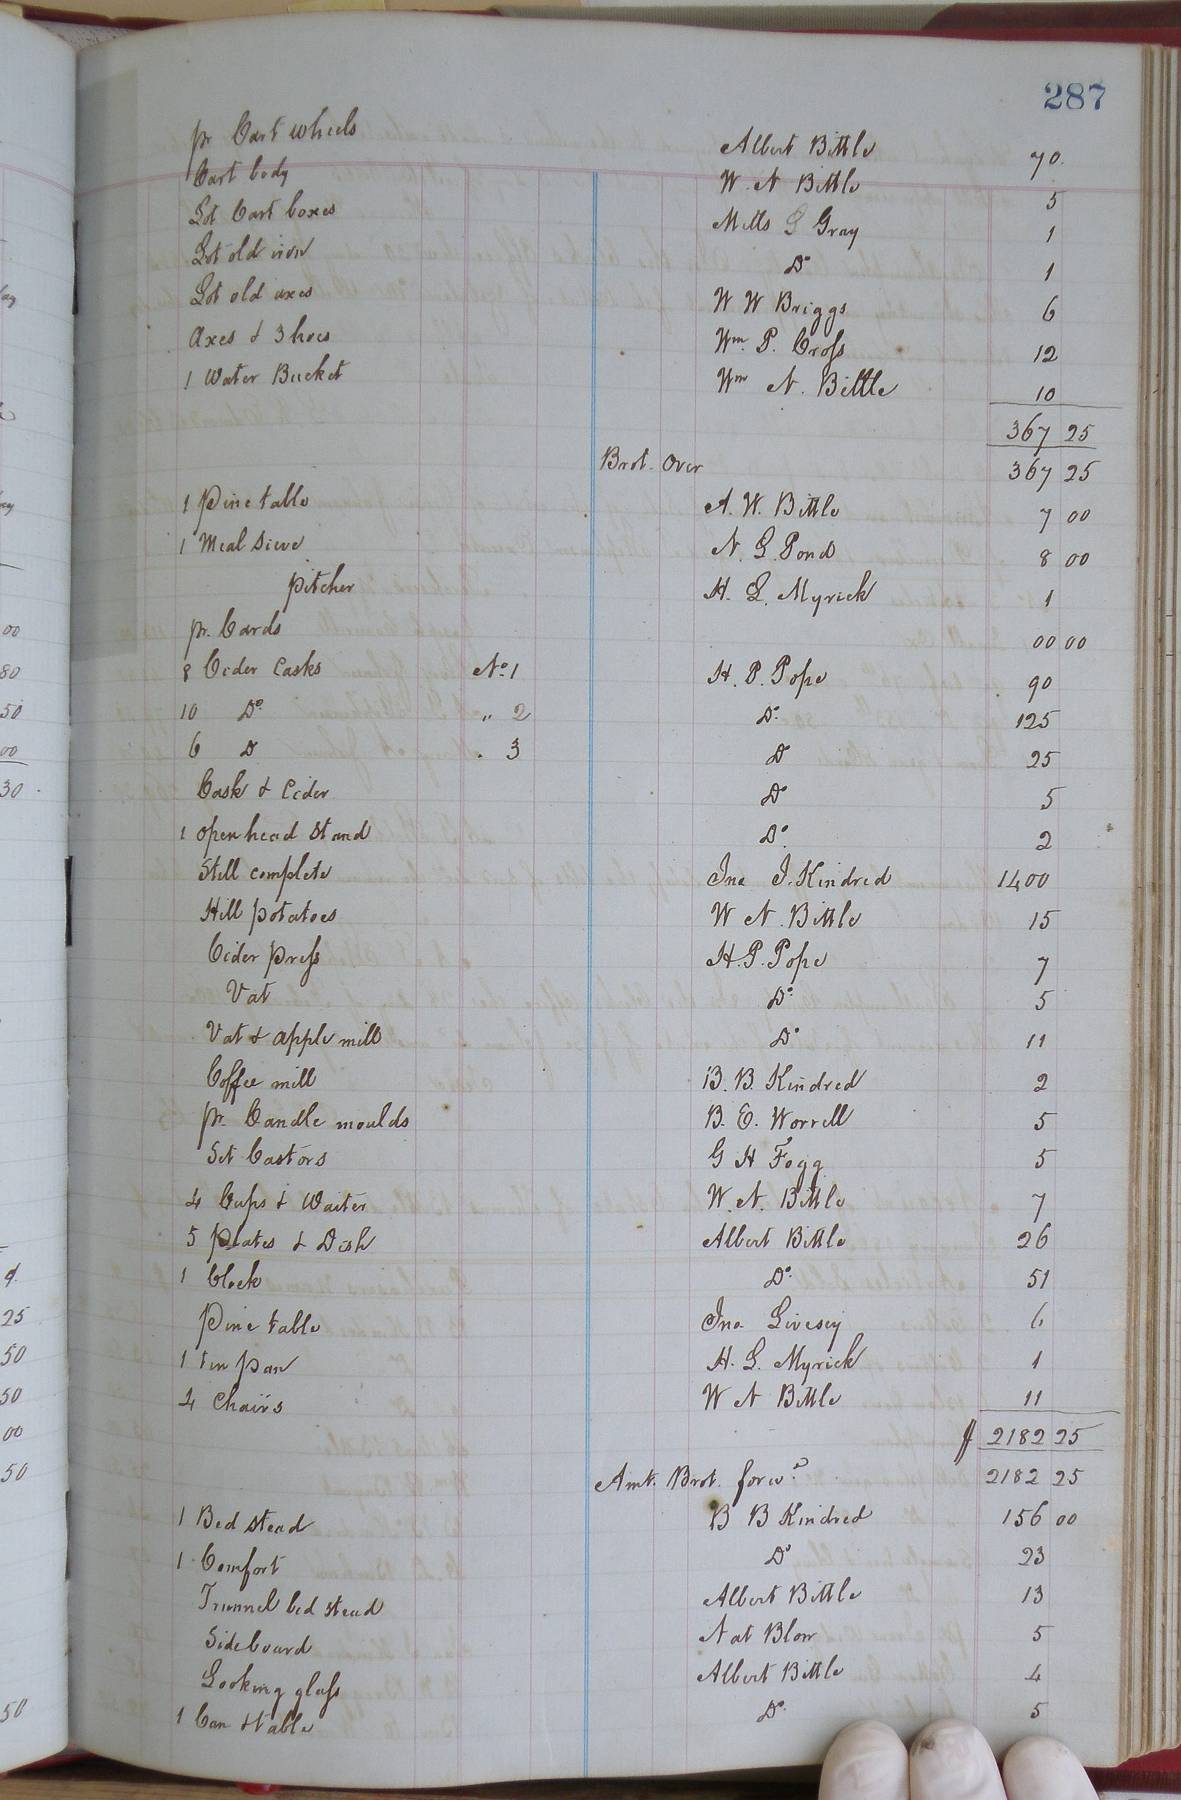 287
pr Cart wheels Albert Bittle 70
Cart body W. N Bittle 5
Lot Cart boxes Mills L Gray 1
Lot old iron Do 1
Lot old axes W W Briggs 6
Axes & 3 hoes Wm. P. Cross 12
1 Water Bucket Wm N. Bittle 10
367 25
Brot. Over 367 25
1 Pine table A. W. Bittle 7 00
1 Meal Sieve N. G. Pond 8 00
Pitcher H. L. Myrick 1
pr. Cards 00 00
8 Cider Casks No. 1 H. P. Pope 90
10 Do. " 2 Do. 125
6 D . 3 D 25
Cask & Cider Do 5
1 open head Stand Do. 2
Still complete Jno J. Kindred 1400
Hill potatoes W N. Bittle 15
Cider Press H. P. Pope 7
Vat Do. 5
Vat & apple mill Do 11
Coffee mill B. B. Kindred 2
pr. Candle moulds B. E. Worrell 5
Set Castors G H Fogg 5
4 Cups & Waiter W. N. Bittle 7
5 Plates & Dish Albert Bittle 26
1 Clock Do. 51
Pine table Jno Livesey 6
1 tin pan H. L. Myrick 1
4 Chairs W N Bittle 11
2182 25
Amt. Brot. forwd. 2182 25
1 Bed stead B B Kindred 156 00
1 Comfort Do 23
Trunnel bed stead Albert Bittle 13
Sideboard Nat Blow 5
Looking glass Albert Bittle 4
1 Can & table Do. 5
00
80
50
00
30
25
50
50
00
50
50